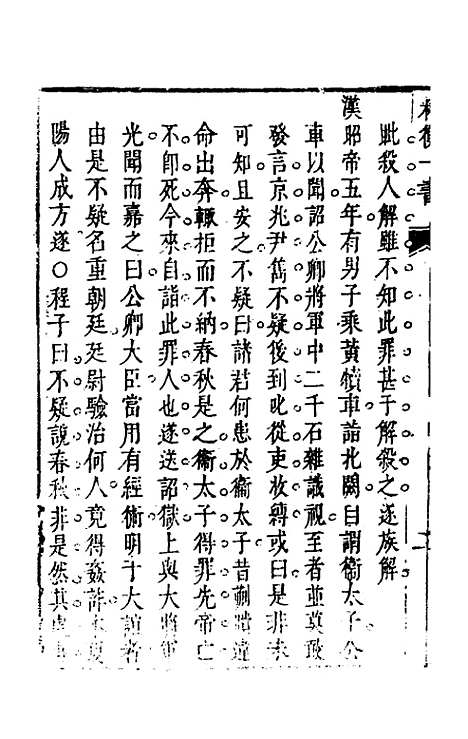 眦殺人解雖不知此罪甚于解殺之遂族解
漢昭帝五年有男子乘黃犢車詣北闕自謂衞太子公
車以聞詔公卿將軍中二千石雜議視至者並莫敢
發言京兆尹雋不疑後到叱從吏收縛或曰是非未
可知且安之不疑曰諸君何患於衞太子昔蒯聵違
命出奔輒拒而不納春秋是之衞太子得罪先帝亡
不卽死今來自詣此罪人也遂送詔獄上與大將軍
光聞而嘉之曰公卿大臣當用有經術明于大誼者
由是不疑名重朝廷廷尉驗治何人竟得姦詐本夏
陽人成方遂○程子曰不疑說春秋非是然其處事